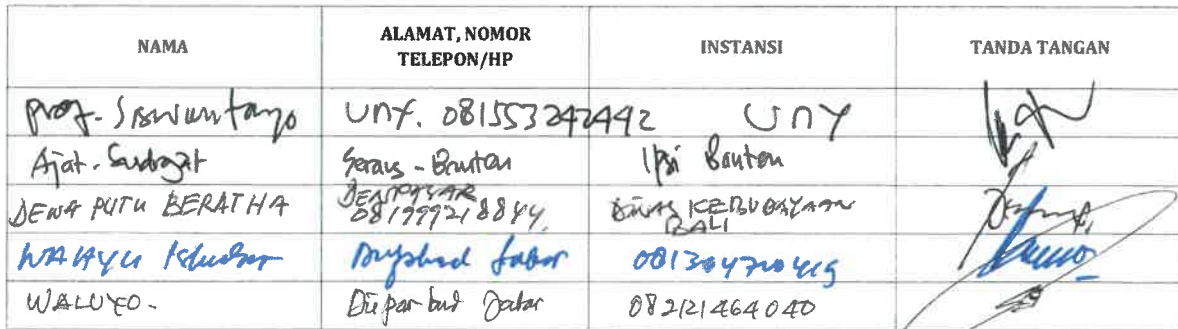 NAMA
ALAMAT, NOMOR
TELEPON/HP
INSTANSI
TANDA TANGAN
Prof. Siswantoyo UNY. 081553242442 UNY
Ajat. Sudrajat Serang - Banten Ipsi Banten
DEWA PUTU BERATHA DENPASAR 081999218844, DINAS KEBUDAYAAN BALI
WAHYU Iskandar Disparbud Jabar
WALUYO- Disparbud Jabar 082121464040